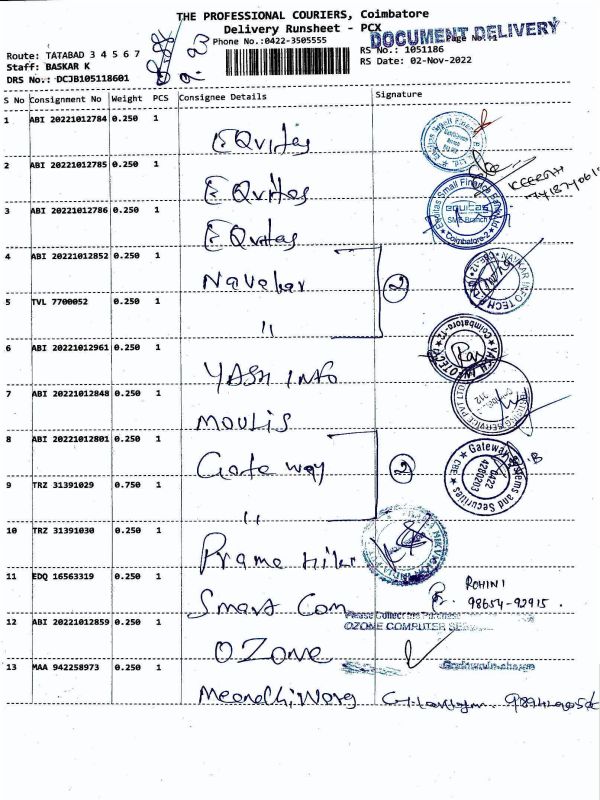 THE PROFESSIONAL COURIERS, Coimbatore
Delivery Runsheet - PCX
DOCUMENT DELIVERY
Phone No.:0422-3505555
Route: TATABAD 3 4 5 6 7
RS No.: 1051186
Staff: BASKAR K
RS Date: 02-Nov-2022
DRS No.: DCJB105118601
S No Consignment No Weight PCS Consignee Details Signature
1 ABI 20221012784 0.250 1 EQuitas
2 ABI 20221012785 0.250 1 EQuitas
KEERTH
Equitas Small Finance Bank Ltd
equitas
SME Branch
Coimbatore-2
3 ABI 20221012786 0.250 1 EQuitas
4 ABI 20221012852 0.250 1 Navakar
2
NAVKAR INFO TECH
CBE-12
5 TVL 7700052 0.250 1 "
6 ABI 20221012961 0.250 1 YASH INFO
YASH INFOTECH
Coimbatore-12
7 ABI 20221012848 0.250 1 MOULIS
8 ABI 20221012801 0.250 1 Gate way
2
Gateway Systems and Securities
CBE
0422
4280203
9 TRZ 31391029 0.750 1 "
10 TRZ 31391030 0.250 1 Prame
11 EDQ 16563319 0.250 1 Smart Com
ROHINI
98654-92915.
Please Collect the Purchase
12 ABI 20221012859 0.250 1 OZone
OZONE COMPUTER
13 MAA 942258973 0.250 1